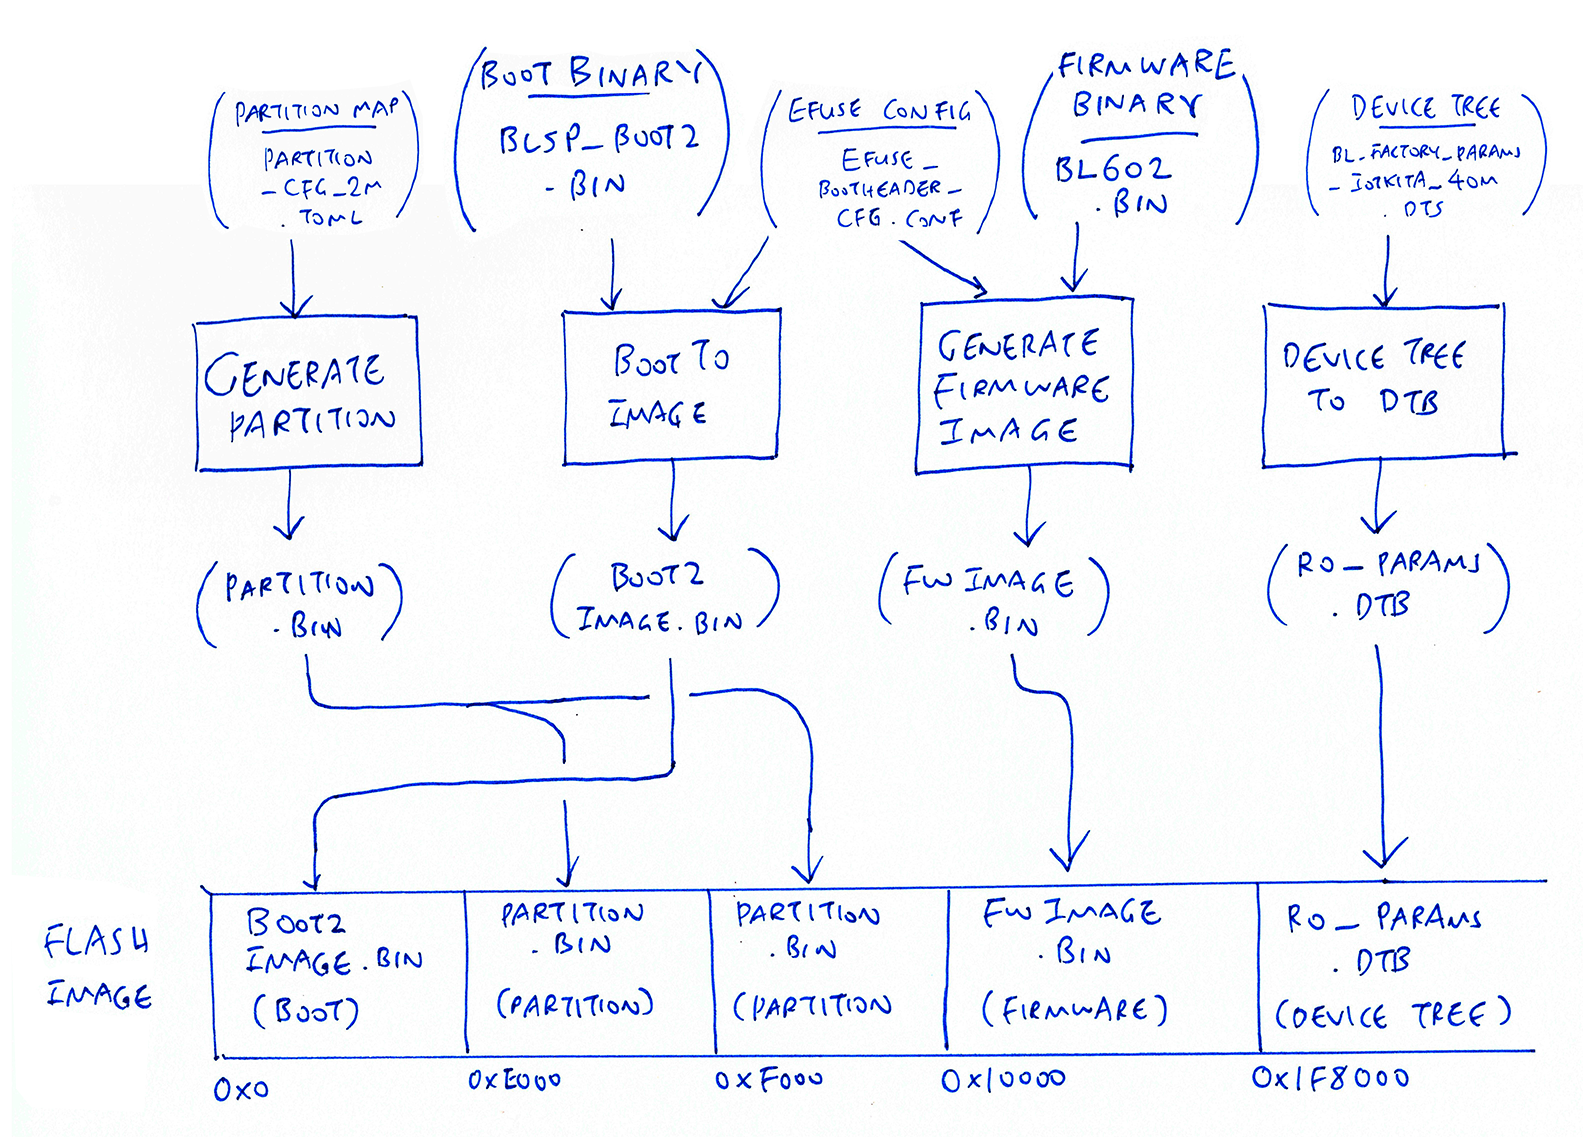 PARTITION MAP
PARTITION
- CFG_2M
. TOML
BOOT BINARY
BLSP_BOOT2
. BIN
EFUSE CONFIG
EFUSE_
BOOTHEADER_
CFG. CONF
FIRMWARE
BINARY
BL602
. BIN
DEVICE TREE
BL_FACTORY_PARAMS
_ IOTKITA_40M
. DTS
GENERATE
PARTITION
BOOT TO
IMAGE
GENERATE
FIRMWARE
IMAGE
DEVICE TREE
TO DTB
(PARTITION
. BIN)
(BOOT2
IMAGE. BIN)
(FW IMAGE
. BIN)
(RO_PARAMS
. DTB)
FLASH
IMAGE
BOOT2
IMAGE. BIN
(BOOT)
PARTITION
. BIN
(PARTITION)
PARTITION
. BIN
(PARTITION
FW IMAGE
. BIN
(FIRMWARE)
RO_PARAMS
. DTB
(DEVICE TREE)
0x0
0xE000
0xF000
0x10000
0x1F8000